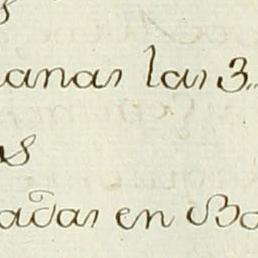 s
anas las 3..
os
adas en Bo